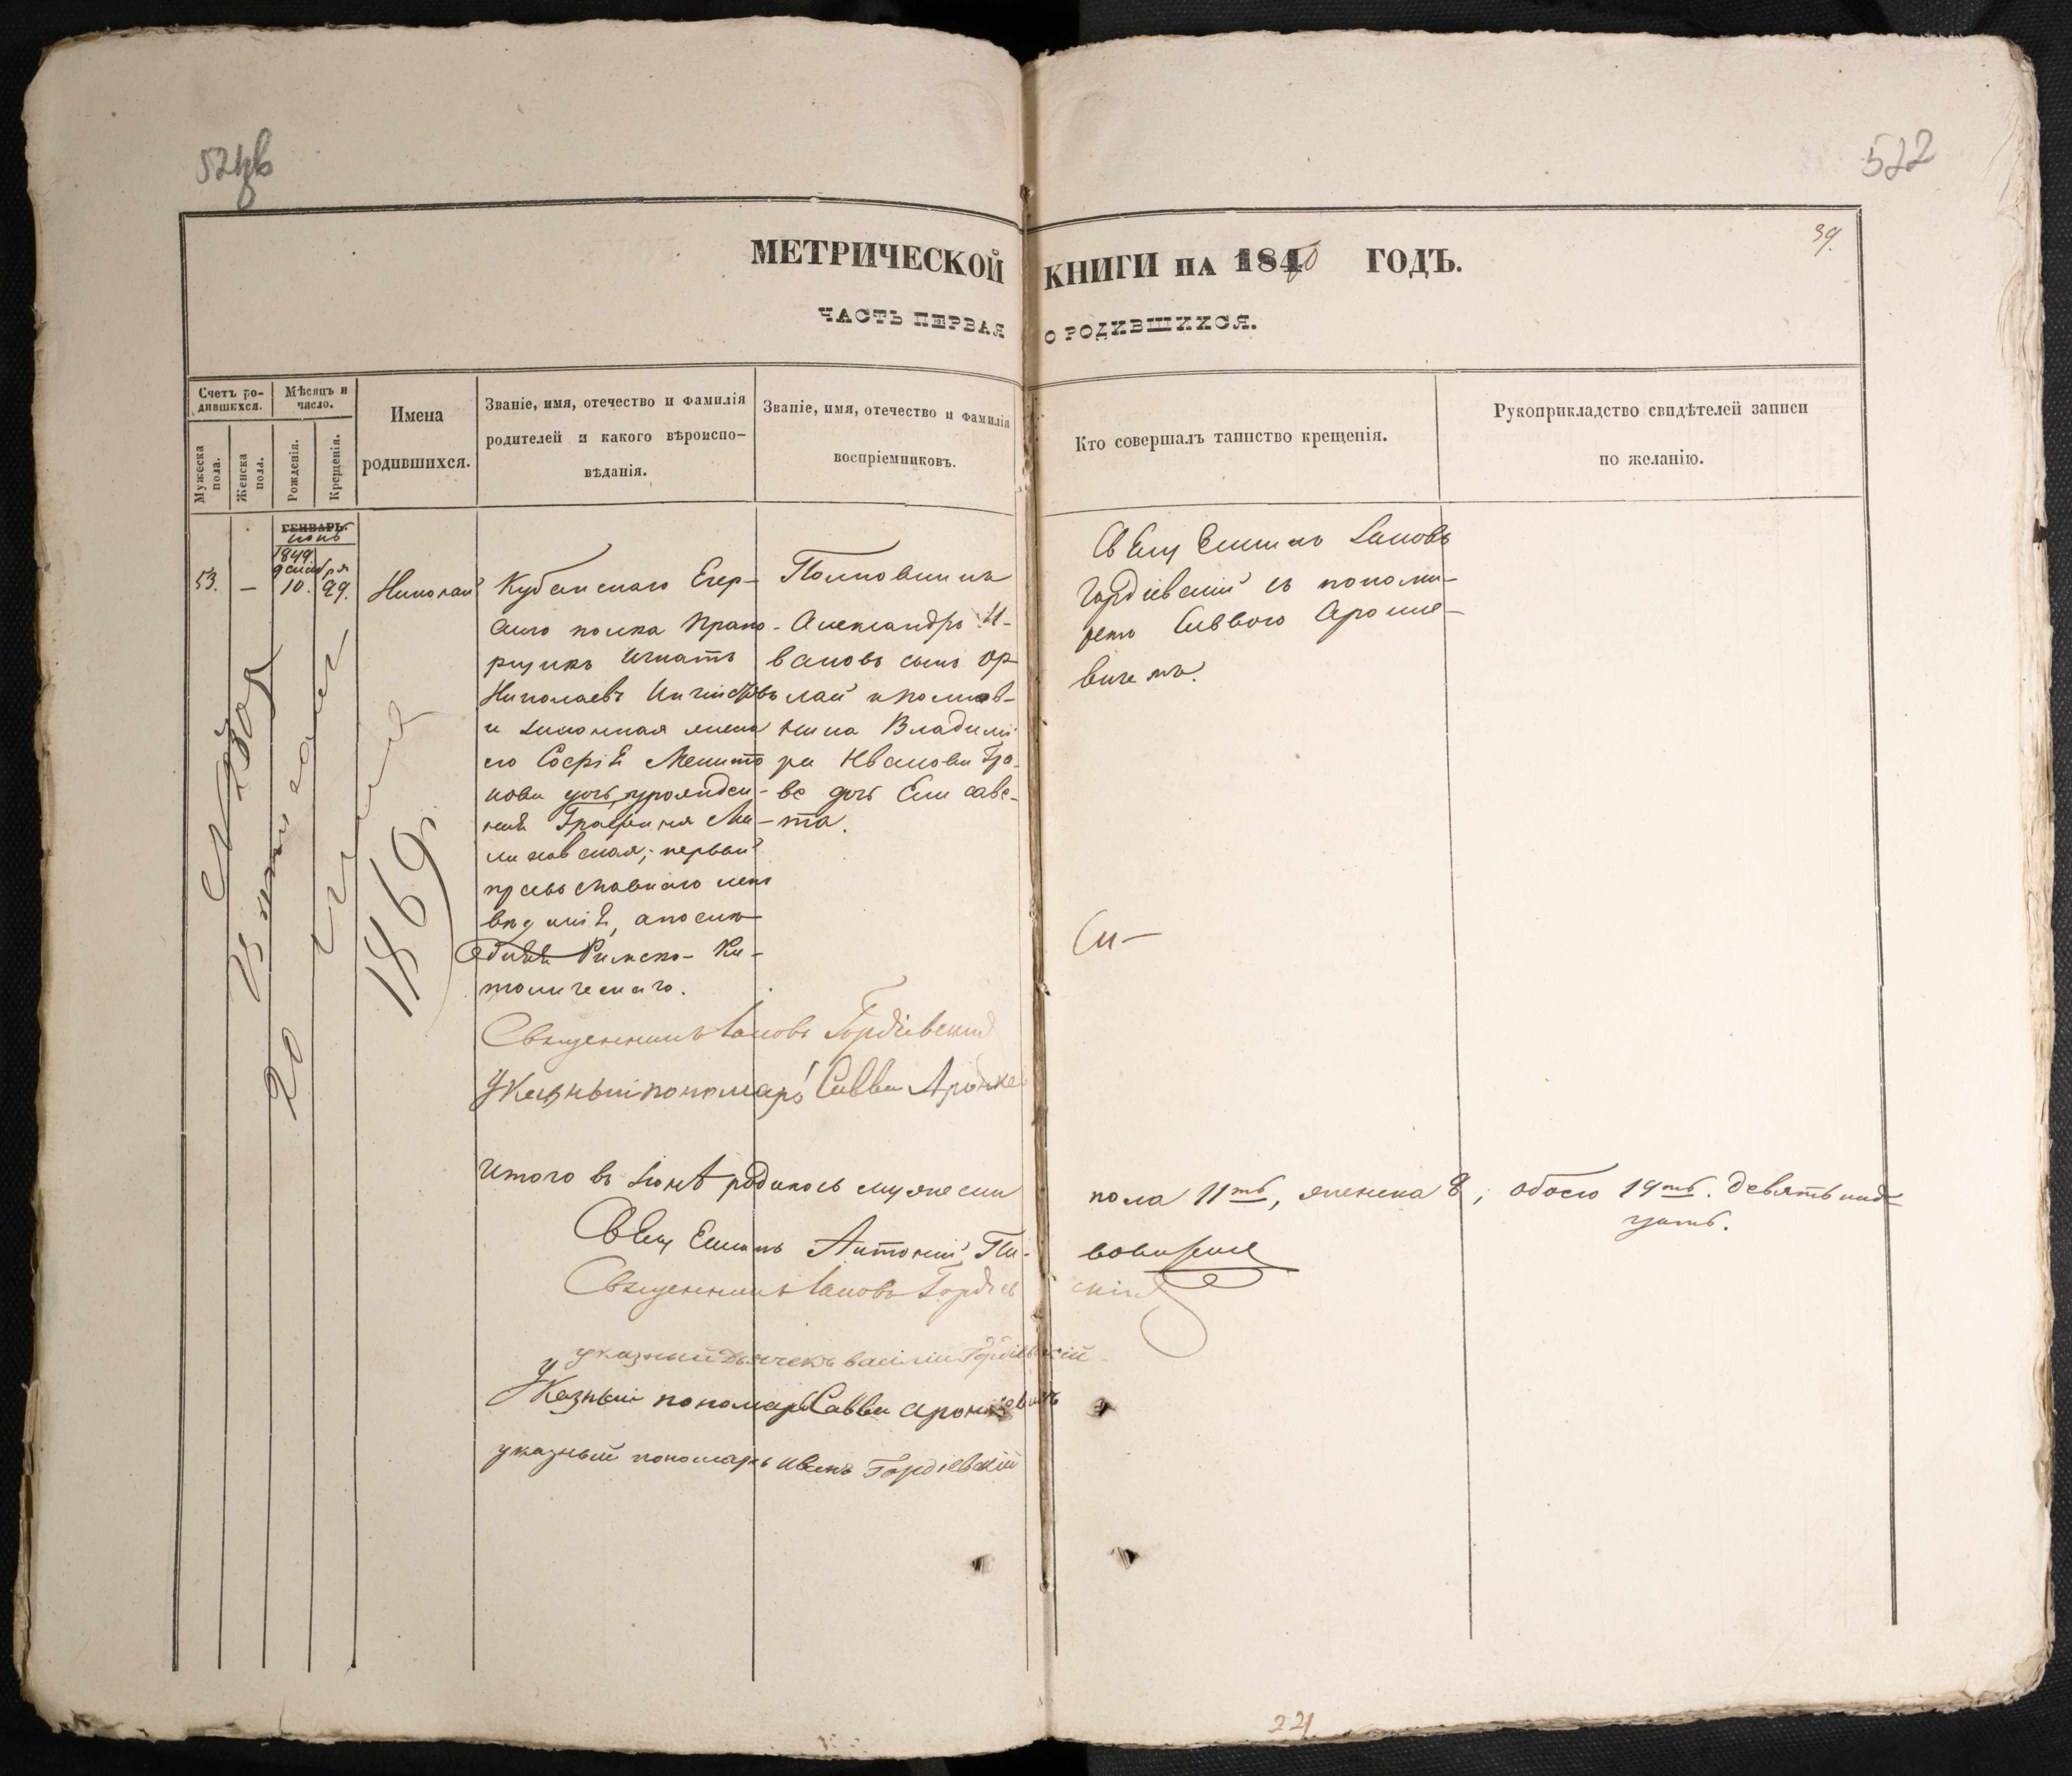 522
39.
МЕТРИЧЕСКОЙ КНИГИ НА 1850 ГОДЪ.
ЧАСТЬ ПЕРВАЯ О РОДИВШИХСЯ.
Счетъ ро-
дившихся.
Мѣсяцъ и
число.
Мужеска
пола.
Женска
пола.
Рожденія.
Крещенія.
Имена
родившихся.
Званіе, имя, отечество и фамилія
родителей и какого вѣроиспо-
вѣданія.
Званіе, имя, отечество и фамилія
воспріемниковъ.
Кто совершалъ таинство крещенія.
Рукоприкладство свидѣтелей записи
по желанію.
ГЕНВАРЬ.
Іюнь
1849.
декабря
53. — 10. 29.
Николай
Кубанскаго Егер-
скаго полка Прапо-
рщикъ Игнатъ
Николаевъ
и законная жена
его Софія
дочь, урожден-
ная Графиня Ма-
лаховская; первый
православнаго испо
вѣданія, а послѣ
дняя Римско-Ка-
толическаго.
Полковникъ
Александръ И-
вановъ сынъ Ор
лай и полков-
ника Владимі
ра Иванова Гро-
ве дочь Елисаве-
та.
Священникъ Іаковъ
Гордіевскій съ понома-
ремъ Саввою Ароние-
вичемъ.
1869
Священникъ Іаковъ Гордіевскій
Указный пономарь Савва
Итого въ Іюнѣ родилось мужеска пола 11ть, женска 8, обоего 19ть. девятьнад-
цать.
Священникъ Антоній
Священникъ Іаковъ Гордіевскій
указный дьячекъ Василій Гордіевскій
Указный пономарь Савва Арониевичъ
указный пономарь Иванъ Гордіевскій